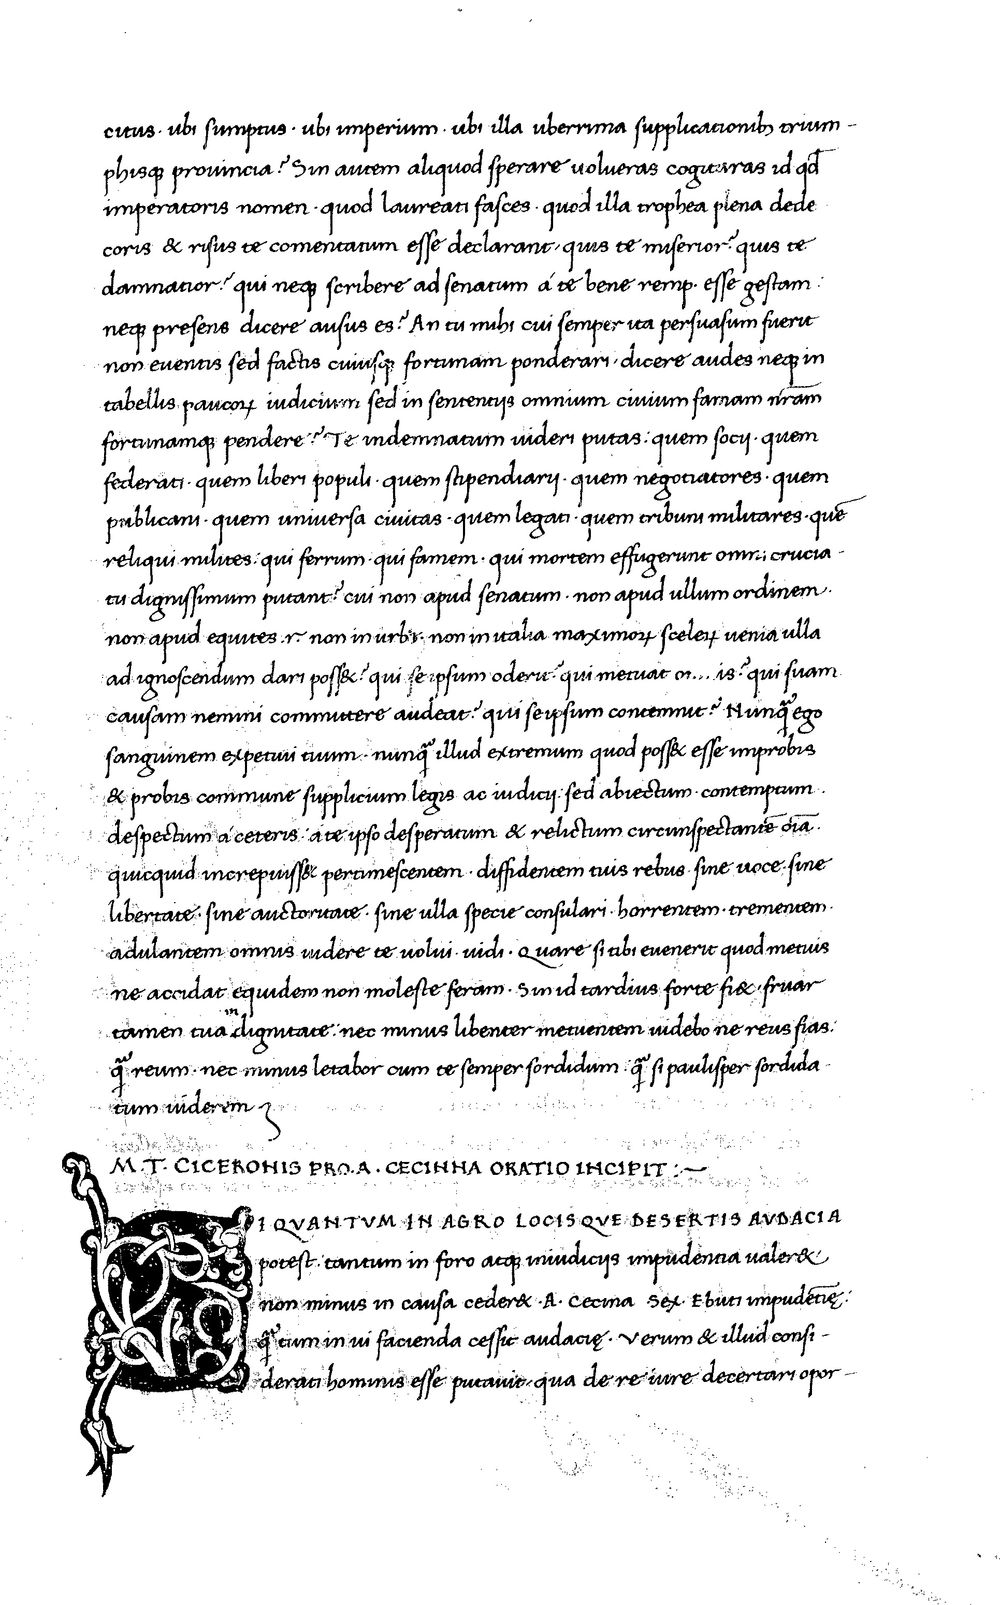 citus · ubi sumptus · ubi imperium · ubi illa uberrima supplicationibꝫ trium-
phisqꝫ prouincia? Sin autem aliquod sperare uolueras cogitaras id qđ
imperatoris nomen · quod laureati fasces · quod illa trophea plena dede
coris & risus te comentatum esse declarant, quis te miserior? quis te
damnatior? qui neqꝫ scribere ad senatum á te bene remp. esse gestam :
neqꝫ presens dicere ausus es? An tu mihi cui semper ita persuasum fuerit
non euentis sed factis cuiusqꝫ fortunam ponderari · dicere audes neqꝫ in
tabellis paucoꝝ iudicium sed in sententijs omnium ciuium famam nr̄am
fortunamqꝫ pendere? Te indemnatum uideri putas: quem socij · quem
federati · quem liberi populi · quem stipendiarij · quem negotiatores · quem
publicani · quem uniuersa ciuitas · quem legati · quem tribuni militares · quē
reliqui milites: qui ferrum · qui famem · qui mortem effugerunt omni crucia-
tu dignissimum putant? cui non apud senatum · non apud ullum ordinem ·
non apud equites .r. non in urbe · non in italia maximoꝝ sceleꝝ uenia ulla
ad ignoscendum dari poss&? qui se ipsum oderit? qui metuat is? qui suam
causam nemini committere audeat? qui se ipsum contemnit? Nunq̄ ego
sanguinem expetiui tuum · nunq̄ illud extremum quod poss& esse improbis
& probis commune supplicium legis ac iudicij: sed abiectum · contemptum ·
despectum á ceteris · á te ipso desperatum & relictum circunspectantē oīa ·
quicquid increpuiss& pertimescentem · diffidentem tuis rebus · sine uoce · sine
libertate · sine auctoritate · sine ulla specie consulari · horrentem · trementem ·
adulantem omnis uidere te uolui · uidi · Quare si tibi euenerit quod metuis
ne accidat equidem non moleste feram · Sin id tardius forte fi& · fruar
tamen tua in dignitate: nec minus libenter metuentem uidebo ne reus fias:
q̄ reum · nec minus letabor cum te semper sordidum · q̄ si paulisper sordida
tum uiderem
M · T · CICERONIS PRO · A · CECINNA ORATIO INCIPIT :—
SI QVANTVM IN AGRO LOCISQVE DESERTIS AVDACIA
potest · tantum in foro atqꝫ iniudicijs impudentia ualer&
non minus in causa ceder& · A · Cecina Sex · Ebuti impudētię:
q̄ tum in ui facienda cessit audacię · Verum & illud consi-
derati hominis esse putauit · qua de re iure decertari opor-